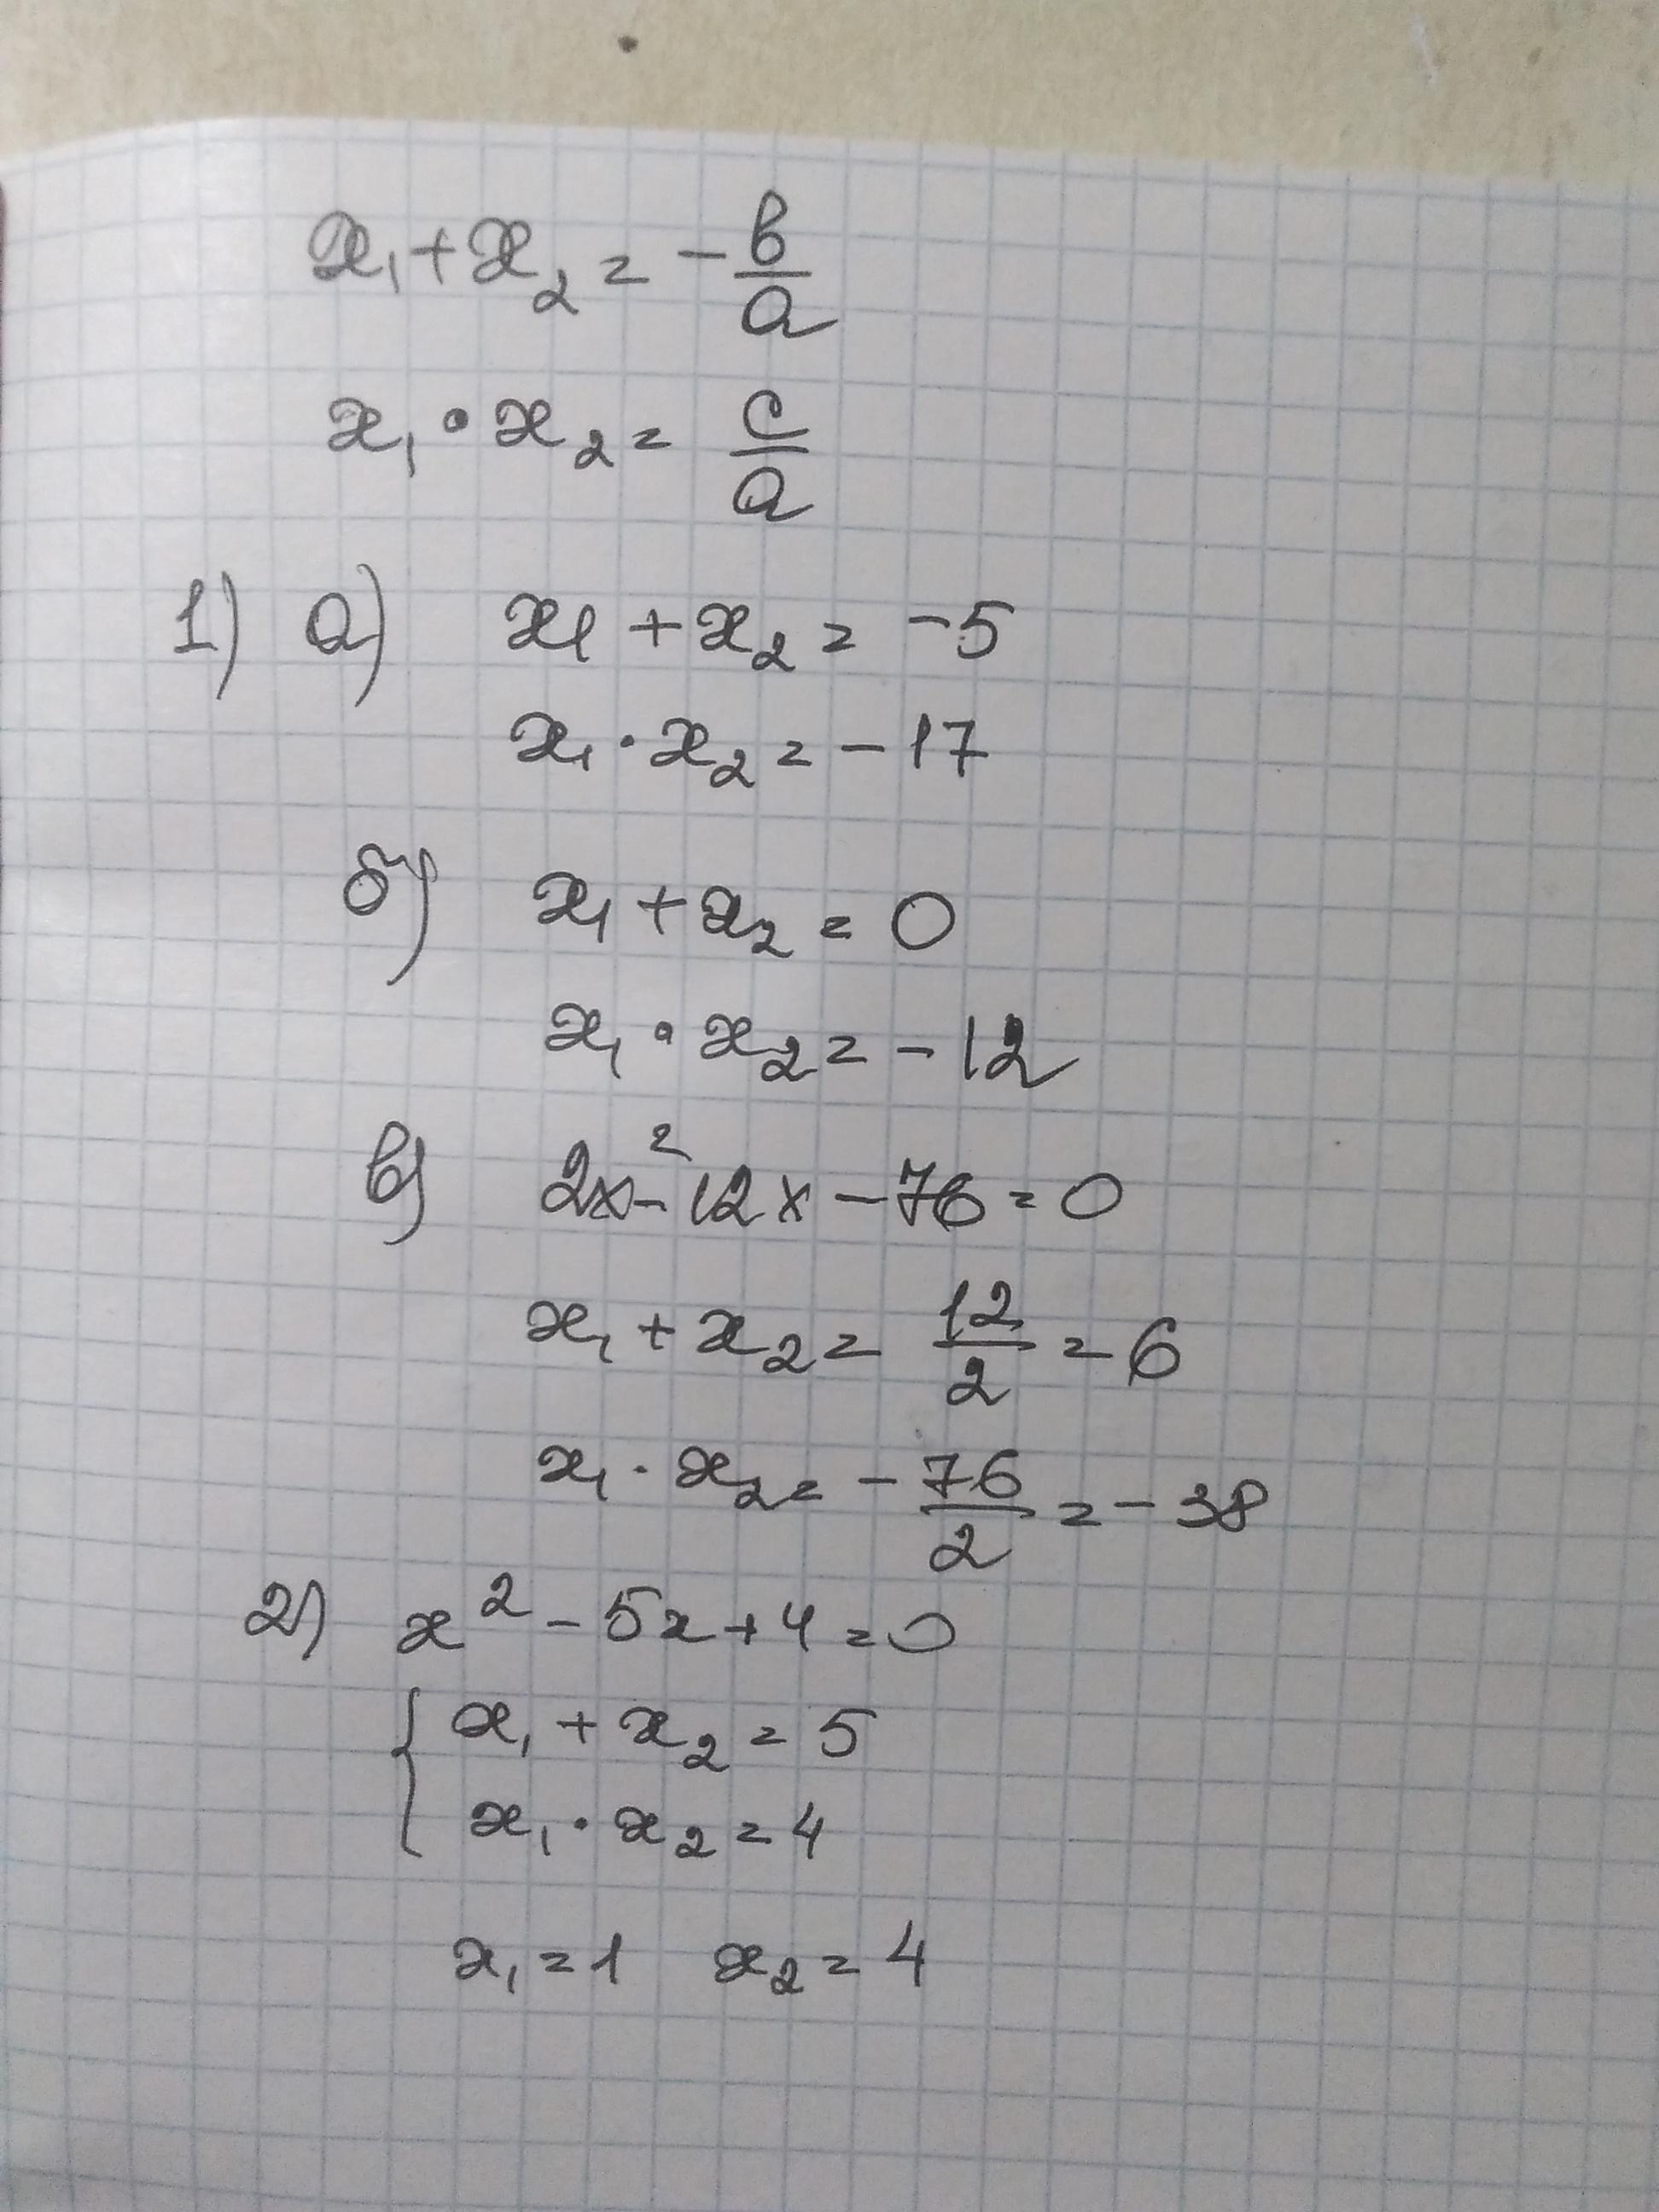 x₁ + x₂ = - b/a
x₁ · x₂ = c/a
1) а) x₁ + x₂ = -5
x₁ · x₂ = -17
б) x₁ + x₂ = 0
x₁ · x₂ = -12
в) 2x² - 12x - 76 = 0
x₁ + x₂ = 12/2 = 6
x₁ · x₂ = - 76/2 = -38
2) x² - 5x + 4 = 0
{ x₁ + x₂ = 5
x₁ · x₂ = 4
x₁ = 1 x₂ = 4